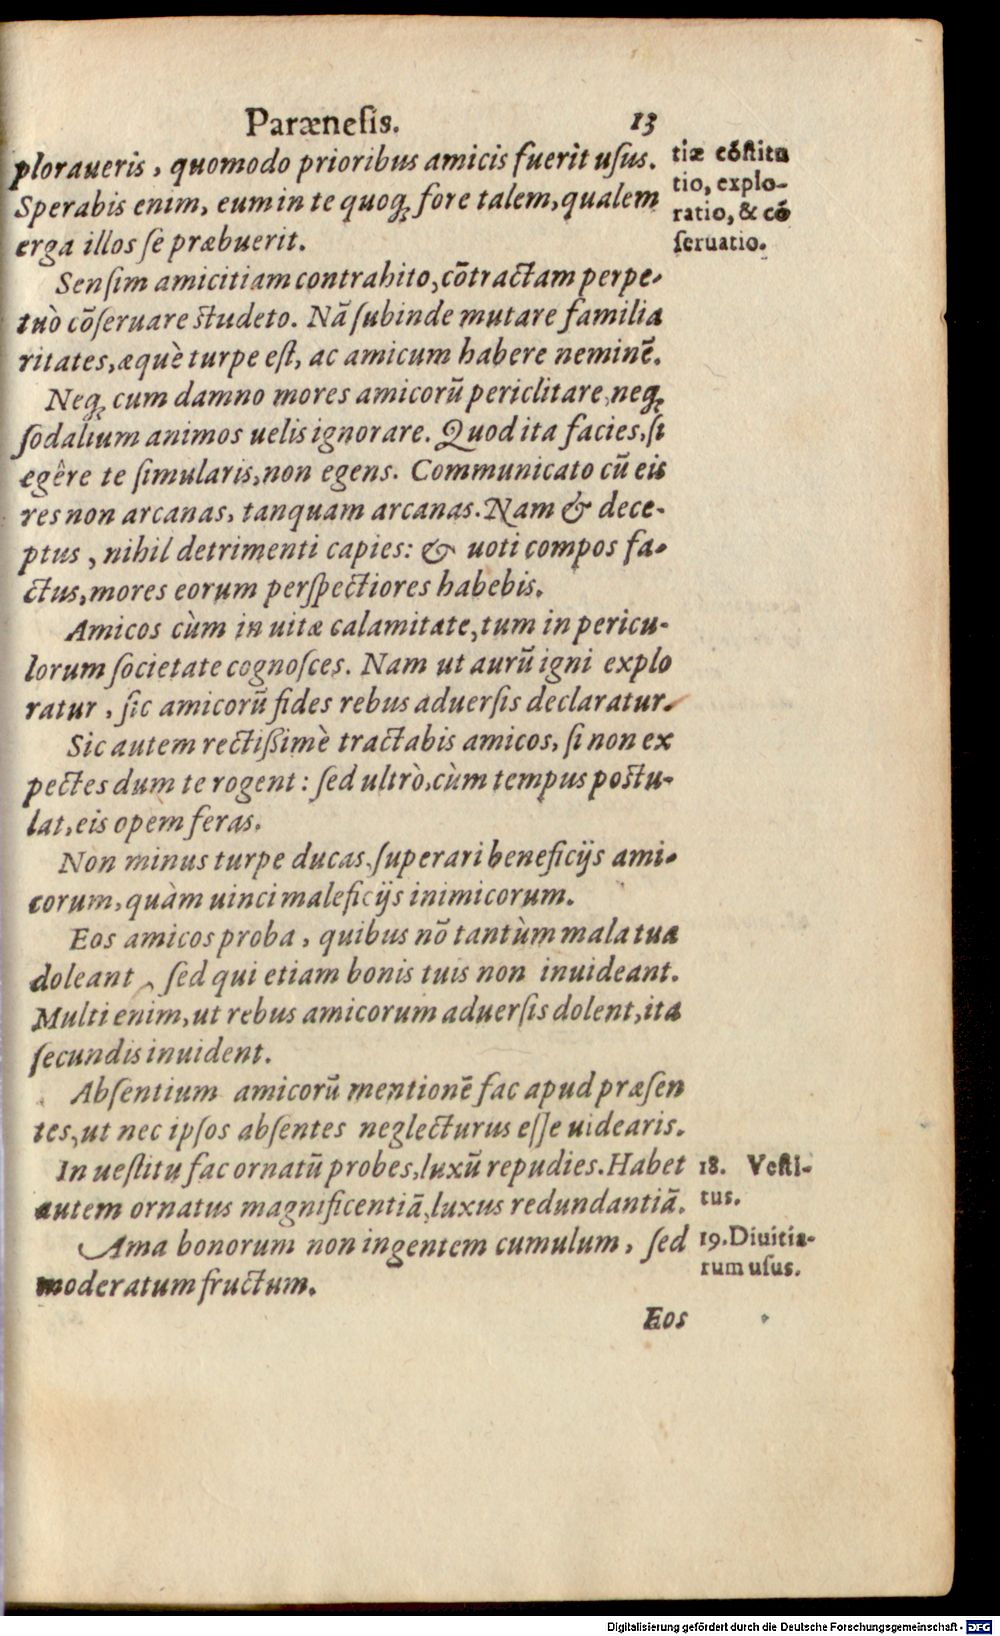 Parænesis. 13
ploraueris, quomodo prioribus amicis fuerit usus.
Sperabis enim, eum in te quoqꝫ fore talem, qualem
erga illos se præbuerit.
tiæ cōstitu
tio, explo-
ratio, & cō
seruatio.
Sensim amicitiam contrahito, cōtractam perpe-
tuò cōseruare studeto. Nã subinde mutare familia
ritates, æquè turpe est, ac amicum habere neminẽ.
Neqꝫ cum damno mores amicorũ periclitare, neqꝫ
sodalium animos uelis ignorare. Quod ita facies, si
egêre te simularis, non egens. Communicato cũ eis
res non arcanas, tanquam arcanas. Nam & dece-
ptus, nihil detrimenti capies: & uoti compos fa-
ctus, mores eorum perspectiores habebis.
Amicos cùm in uitæ calamitate, tum in pericu-
lorum societate cognosces. Nam ut aurũ igni explo
ratur, sic amicorũ fides rebus aduersis declaratur.
Sic autem rectißimè tractabis amicos, si non ex
pectes dum te rogent: sed ultrò, cùm tempus postu-
lat, eis opem feras.
Non minus turpe ducas, superari beneficijs ami-
corum, quàm uinci maleficijs inimicorum.
Eos amicos proba, quibus nō tantùm mala tua
doleant, sed qui etiam bonis tuis non inuideant.
Multi enim, ut rebus amicorum aduersis dolent, ita
secundis inuident.
Absentium amicorũ mentionẽ fac apud præsen
tes, ut nec ipsos absentes neglecturus esse uidearis.
In uestitu fac ornatũ probes, luxũ repudies. Habet
autem ornatus magnificentiã, luxus redundantiã.
18. Vesti-
tus.
Ama bonorum non ingentem cumulum, sed
moderatum fructum.
19. Diuitia-
rum usus.
Eos
Digitalisierung gefördert durch die Deutsche Forschungsgemeinschaft - DFG